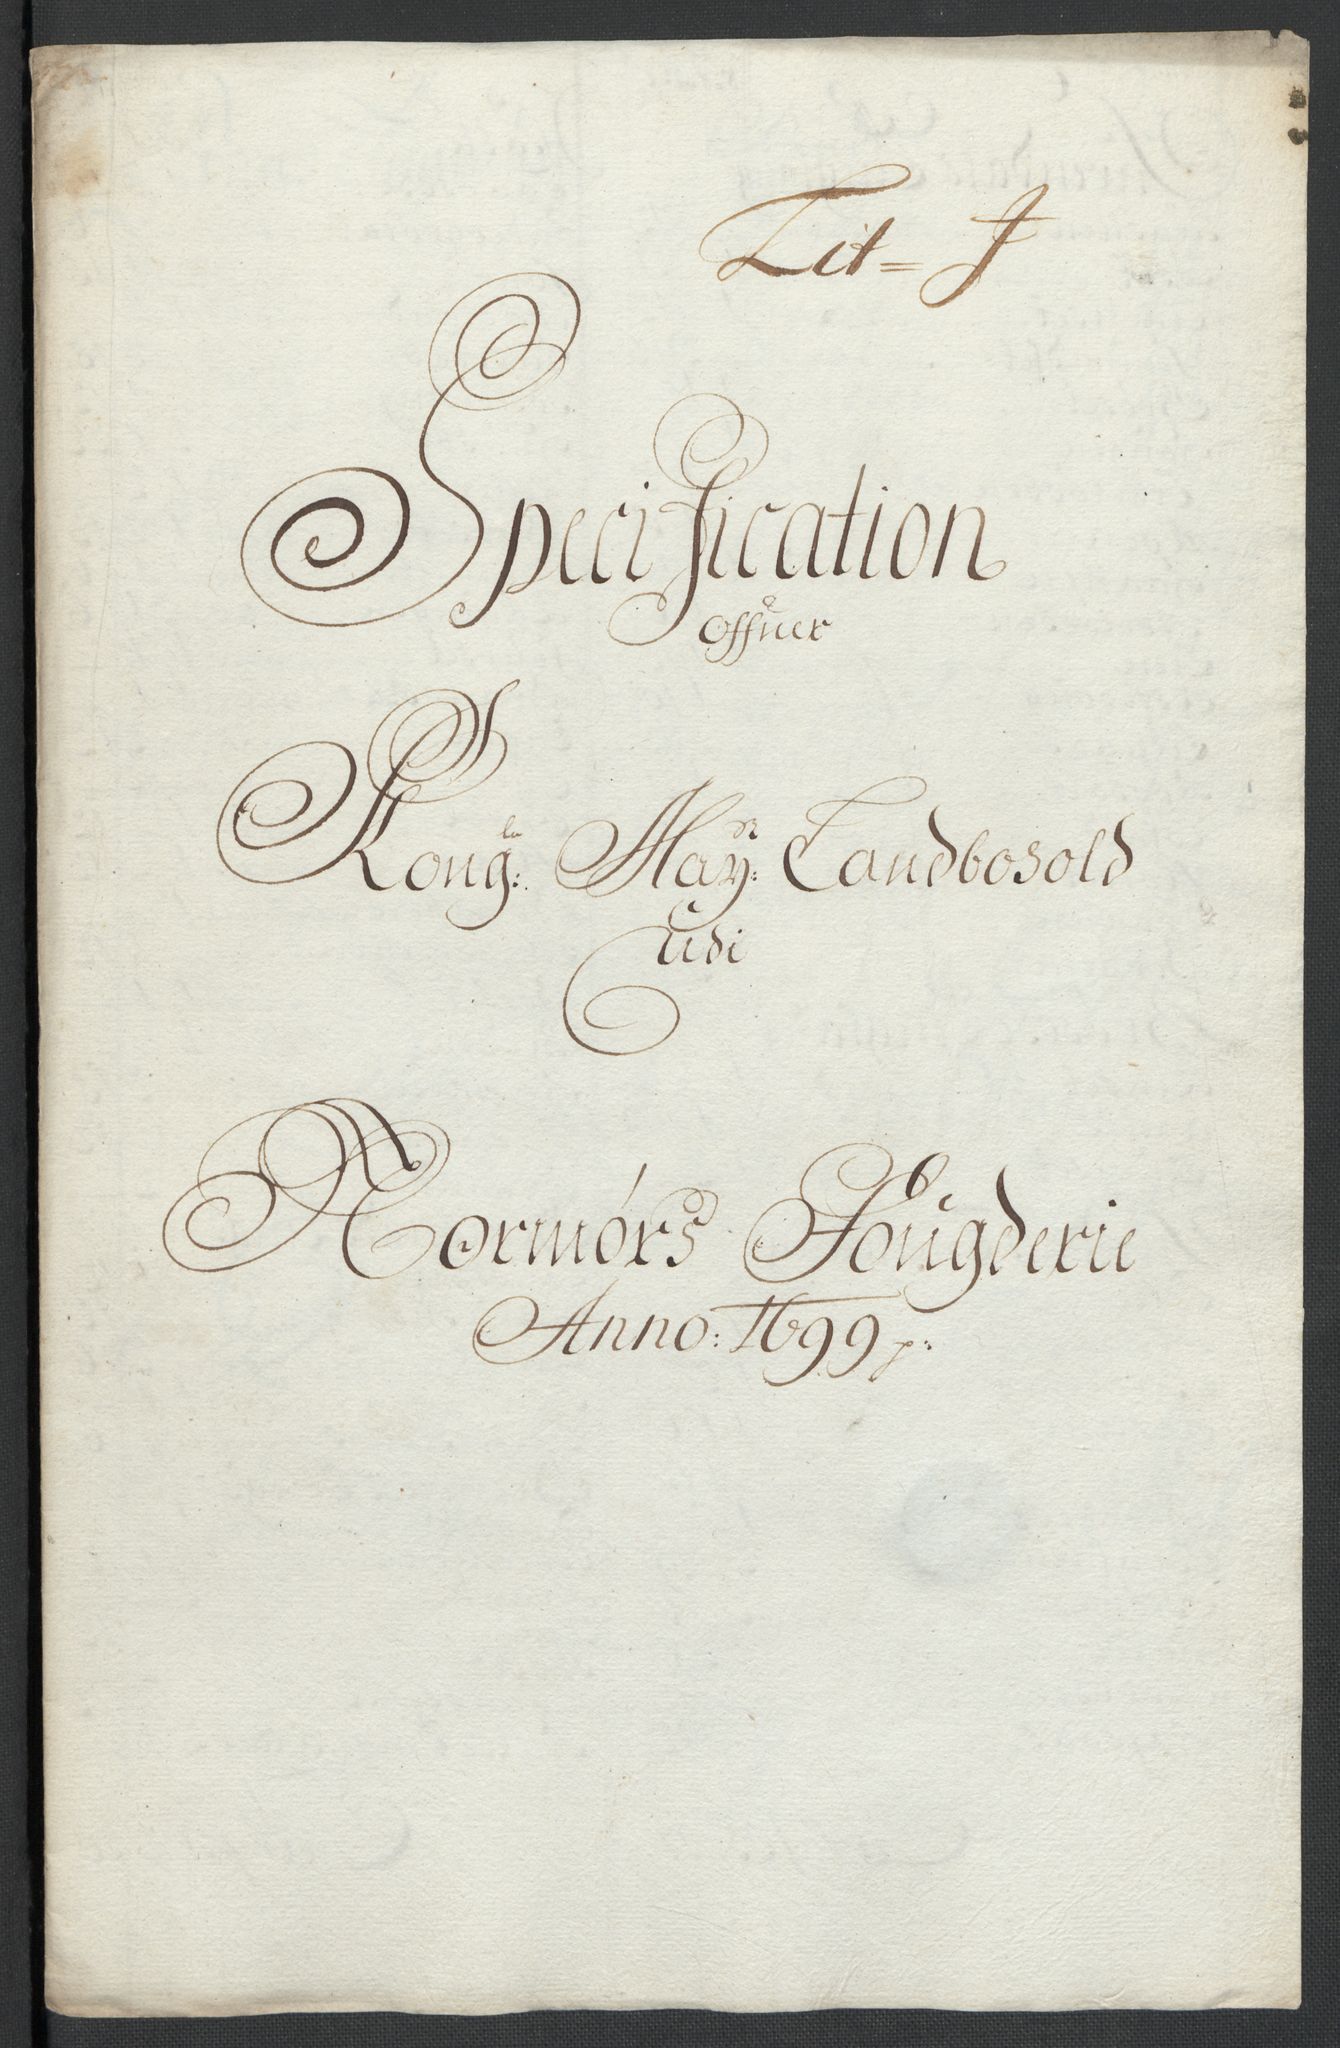 Lit= J
Specification
offuer
Kong:le May:tz Landbosold
udi
Normørs Fougderie
Anno: 1699 p: